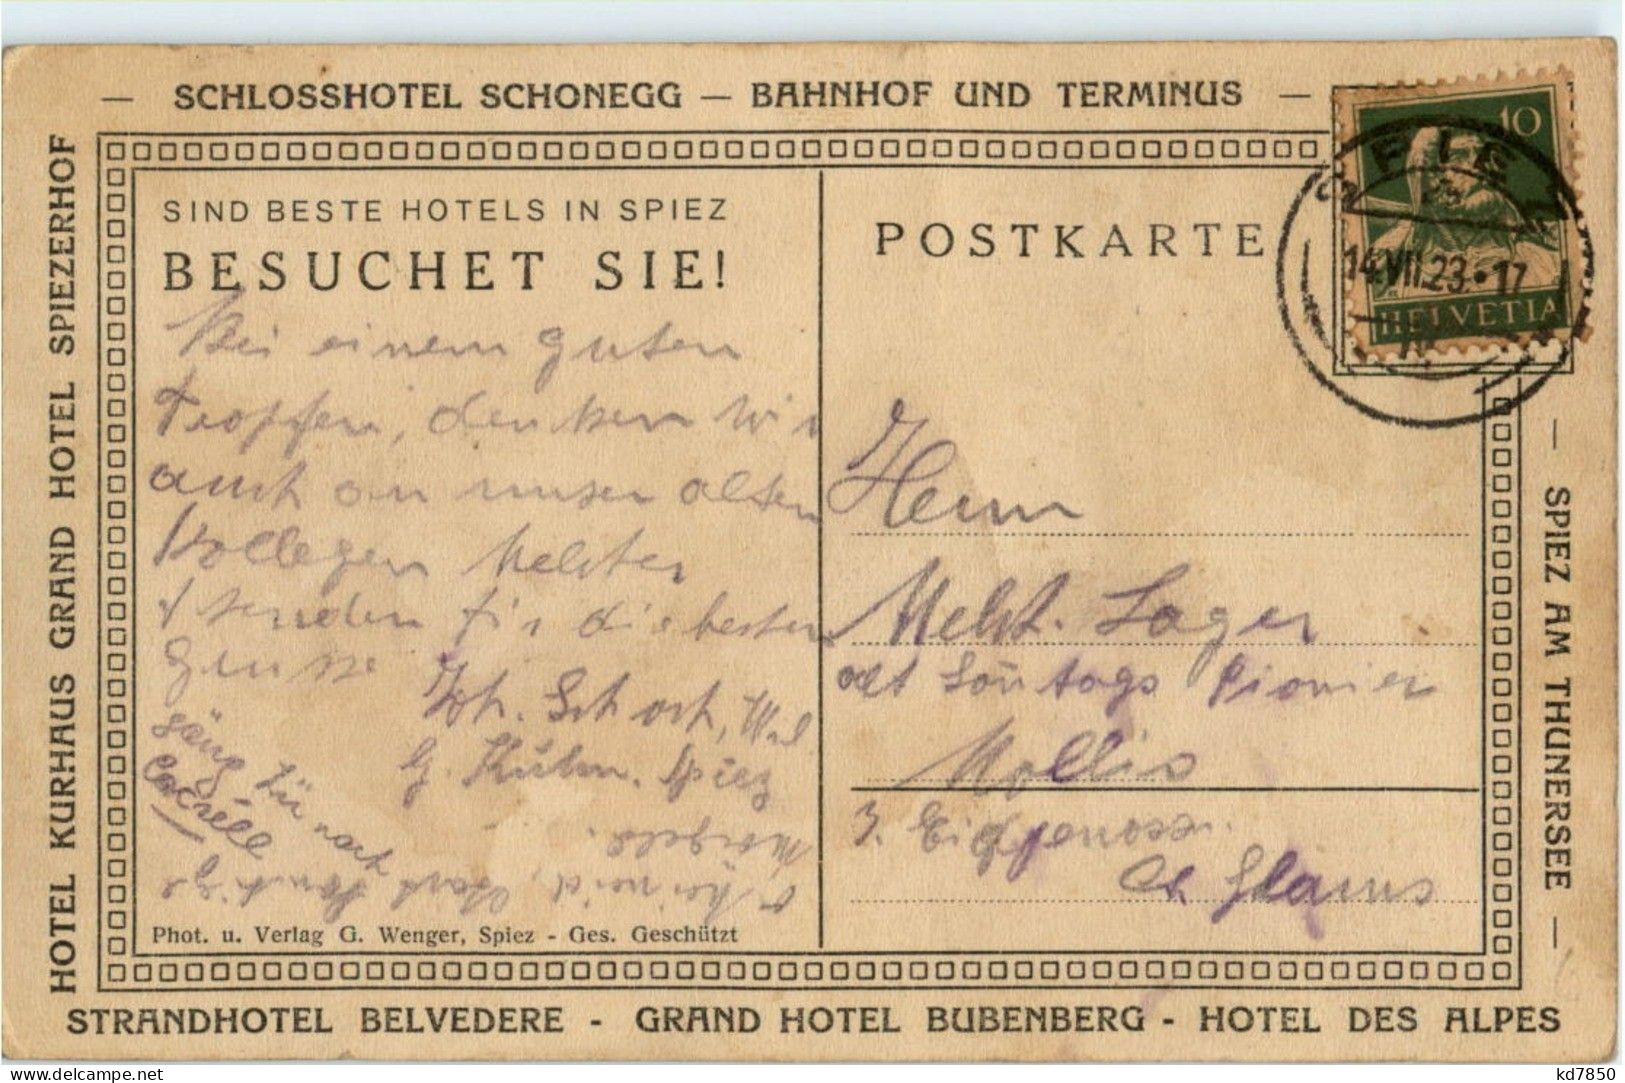 — SCHLOSSHOTEL SCHONEGG — BAHNHOF UND TERMINUS —
HOTEL KURHAUS GRAND HOTEL SPIEZERHOF
SIND BESTE HOTELS IN SPIEZ
BESUCHET SIE!
POSTKARTE
10
HELVETIA
SPIEZ
14.VII.23.•17
Bei einem guten
Tropfen, denken wir
auch an unser alten
Kollegen Melster
& senden für die besten
Grüsse
Joh. Schoch, Wal
G. Kühn. Spiez
Herrn
Melch. Lager
alt Sontags Pionier
Mollis
z. Eidgenoss.
Ct. Glarus
Phot. u. Verlag G. Wenger, Spiez - Ges. Geschützt
— SPIEZ AM THUNERSEE —
STRANDHOTEL BELVEDERE - GRAND HOTEL BUBENBERG - HOTEL DES ALPES
delcampe.net
kd7850